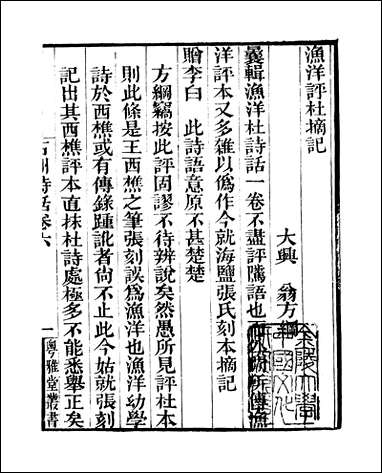 漁洋評杜摘記
大興 翁方綱
曩輯漁洋杜詩話一卷不盡評隲語也外間所傳漁
洋評本又多雜以僞作今就海鹽張氏刻本摘記
贈李白 此詩語意原不甚楚楚
方綱竊按此評固謬不待辨說矣然愚所見評杜本
則此條是王西樵之筆張刻誤爲漁洋也漁洋幼學
詩於西樵或有傳錄踵訛者尚不止此今姑就張刻
記出其西樵評本直抹杜詩處極多不能悉舉正矣
石洲詩話卷六
一
粵雅堂叢書
金陵大學
中國文化